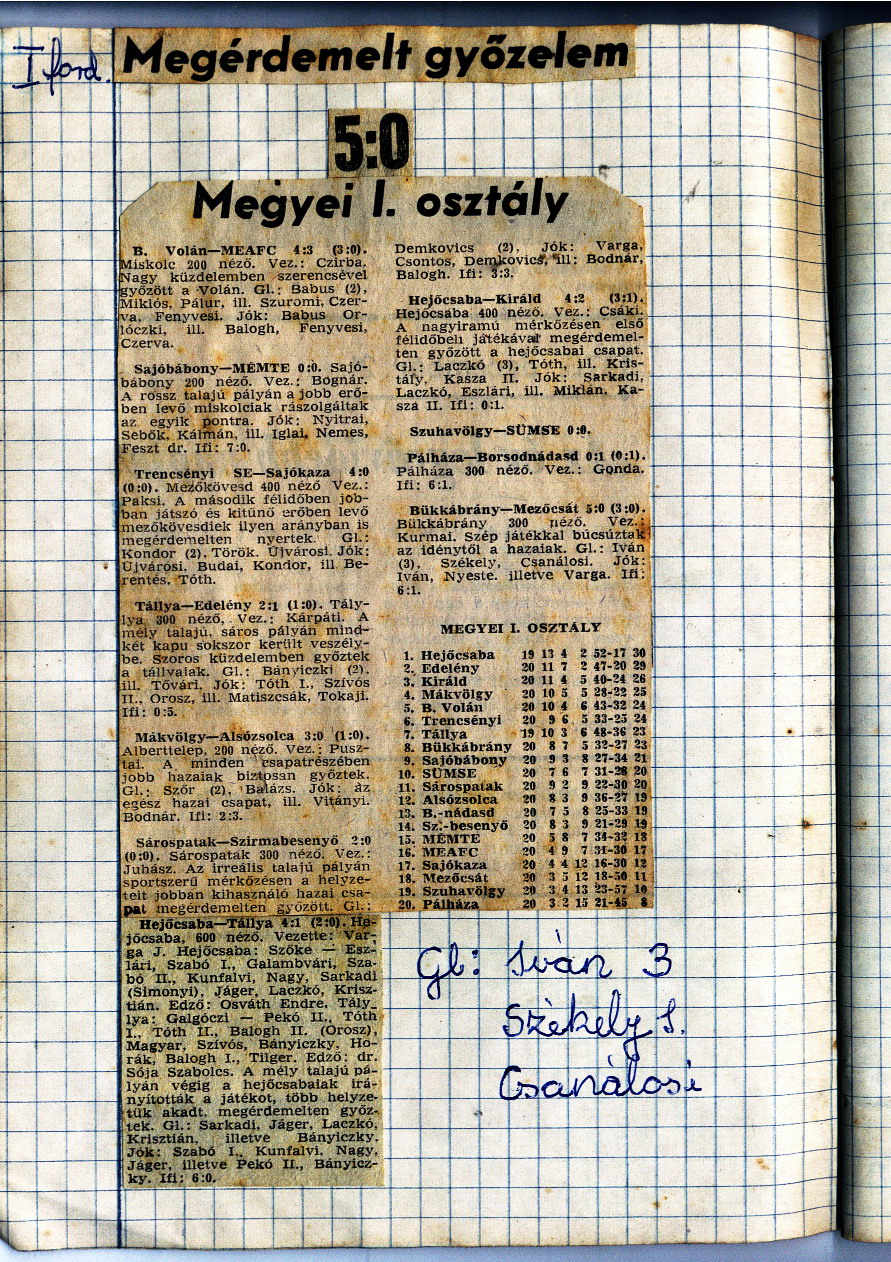 I ford.
Megérdemelt győzelem
5:0
Megyei I. osztály
B. Volán—MEAFC 4:3 (3:0).
Miskolc 200 néző. Vez.: Czirba.
Nagy küzdelemben szerencsével
győzött a Volán. Gl.: Babus (2),
Miklós, Pálur, ill. Szuromi, Czer-
va, Fenyvesi. Jók: Babus Or-
lóczki, ill. Balogh, Fenyvesi,
Czerva.
Sajóbábony—MÉMTE 0:0. Sajó-
bábony 200 néző. Vez.: Bognár.
A rossz talajú pályán a jobb erő-
ben levő miskolciak rászolgáltak
az egyik pontra. Jók: Nyitrai,
Sebők, Kálmán, ill. Iglai, Nemes,
Feszt dr. Ifi: 7:0.
Trencsényi SE—Sajókaza 4:0
(0:0). Mezőkövesd 400 néző Vez.:
Paksi. A második félidőben job-
ban játszó és kitűnő erőben levő
mezőkövesdiek ilyen arányban is
megérdemelten nyertek. Gl.:
Kondor (2), Török. Újvárosi. Jók:
Újvárosi, Budai, Kondor, ill. Be-
rentés, Tóth.
Tállya—Edelény 2:1 (1:0). Tály-
lya 300 néző. Vez.: Kárpáti. A
mély talajú, sáros pályán mind-
két kapu sokszor került veszély-
be. Szoros küzdelemben győztek
a tállyaiak. Gl.: Bányiczki (2),
ill. Tóvári. Jók: Tóth I., Szívós
II., Orosz, ill. Matiszcsák, Tokaji.
Ifi: 0:5.
Mákvölgy—Alsózsolca 3:0 (1:0).
Alberttelep, 200 néző. Vez.: Pusz-
tai. A minden csapatrészében
jobb hazaiak biztosan győztek.
Gl.: Szőr (2), Balázs. Jók: az
egész hazai csapat, ill. Vitányi.
Bodnár. Ifi: 2:3.
Sárospatak—Szirmabesenyő 2:0
(0:0). Sárospatak 300 néző. Vez.:
Juhász. Az irreális talajú pályán
sportszerű mérkőzésen a helyze-
teit jobban kihasználó hazai csa-
pat megérdemelten győzött. Gl.:
Demkovics (2). Jók: Varga,
Csontos, Demkovics, ill: Bodnár,
Balogh. Ifi: 3:3.
Hejőcsaba—Királd 4:2 (3:1).
Hejőcsaba 400 néző. Vez.: Csáki.
A nagyiramú mérkőzésen első
félidőbeli játékával megérdemel-
ten győzött a hejőcsabai csapat.
Gl.: Laczkó (3), Tóth, ill. Kris-
tály, Kasza II. Jók: Sarkadi,
Laczkó, Eszlári, ill. Miklán, Ka-
sza II. Ifi: 0:1.
Szuhavölgy—SÜMSE 0:0.
Pálháza—Borsodnádasd 0:1 (0:1).
Pálháza 300 néző. Vez.: Gonda.
Ifi: 6:1.
Bükkábrány—Mezőcsát 5:0 (3:0).
Bükkábrány 300 néző. Vez.:
Kurmai. Szép játékkal búcsúztak
az idénytől a hazaiak. Gl.: Iván
(3), Székely, Csanálosi. Jók:
Iván, Nyeste. illetve Varga. Ifi:
6:1.
MEGYEI I. OSZTÁLY
1. Hejőcsaba 19 13 4 2 52-17 30
2. Edelény 20 11 7 2 47-20 29
3. Királd 20 11 4 5 40-24 26
4. Mákvölgy 20 10 5 5 28-22 25
5. B. Volán 20 10 4 6 43-32 24
6. Trencsényi 20 9 6 5 33-25 24
7. Tállya 19 10 3 6 48-36 23
8. Bükkábrány 20 8 7 5 32-27 23
9. Sajóbábony 20 9 3 8 27-34 21
10. SÜMSE 20 7 6 7 31-28 20
11. Sárospatak 20 9 2 9 22-30 20
12. Alsózsolca 20 8 3 9 36-27 19
13. B.-nádasd 20 7 5 8 25-33 19
14. Sz.-besenyő 20 8 3 9 21-29 19
15. MÉMTE 20 5 8 7 34-32 18
16. MEAFC 20 4 9 7 31-30 17
17. Sajókaza 20 4 4 12 16-30 12
18. Mezőcsát 20 3 5 12 18-50 11
19. Szuhavölgy 20 3 4 13 23-57 10
20. Pálháza 20 3 2 15 21-45 8
Hejőcsaba—Tállya 4:1 (2:0). He-
jőcsaba, 600 néző. Vezette: Var-
ga J. Hejőcsaba: Szőke — Esz-
lári, Szabó I., Galambvári, Sza-
bó II., Kunfalvi, Nagy, Sarkadi
(Simonyi), Jáger, Laczkó, Krisz-
tián. Edző: Osváth Endre. Tály-
lya: Galgóczi — Pekó II., Tóth
I., Tóth II., Balogh II. (Orosz),
Magyar, Szívós, Bányiczky, Ho-
rák, Balogh I., Tilger. Edző: dr.
Sója Szabolcs. A mély talajú pá-
lyán végig a hejőcsabaiak irá-
nyították a játékot, több helyze-
tük akadt, megérdemelten győz-
tek. Gl.: Sarkadi, Jáger, Laczkó,
Krisztián, illetve Bányiczky.
Jók: Szabó I., Kunfalvi, Nagy,
Jáger, illetve Pekó II., Bányicz-
ky. Ifi: 6:0.
Gl: Iván 3
Székely S.
Csanálosi